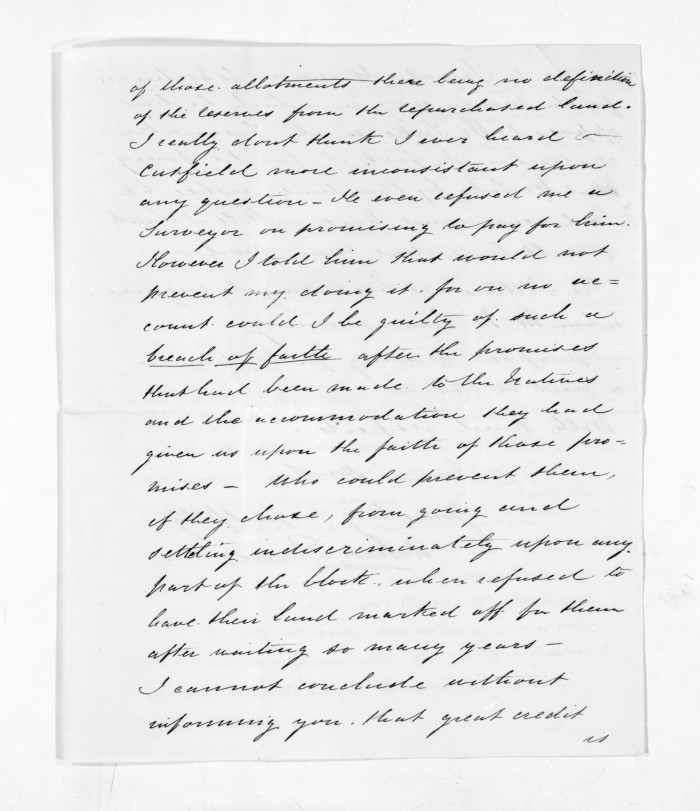 of those allotments there being no definition
of the reserves from the repurchased land.
I really dont think I ever heard
Cutfield more inconsistant upon
any question - He even refused me a
Surveyor on promising to pay for him.
However I told him that would not
prevent my doing it. for on no ac=
count could I be guilty of such a
breach of faith after the promises
that had been made to the Natives
and the accommodation they had
given us upon the faith of those pro-
mises - Who could prevent them,
if they chose, from going and
settling indiscriminately upon any
part of the block, when refused to
have their land marked off for them
after waiting so many years -
I cannot conclude without
informing you. that great credit
is